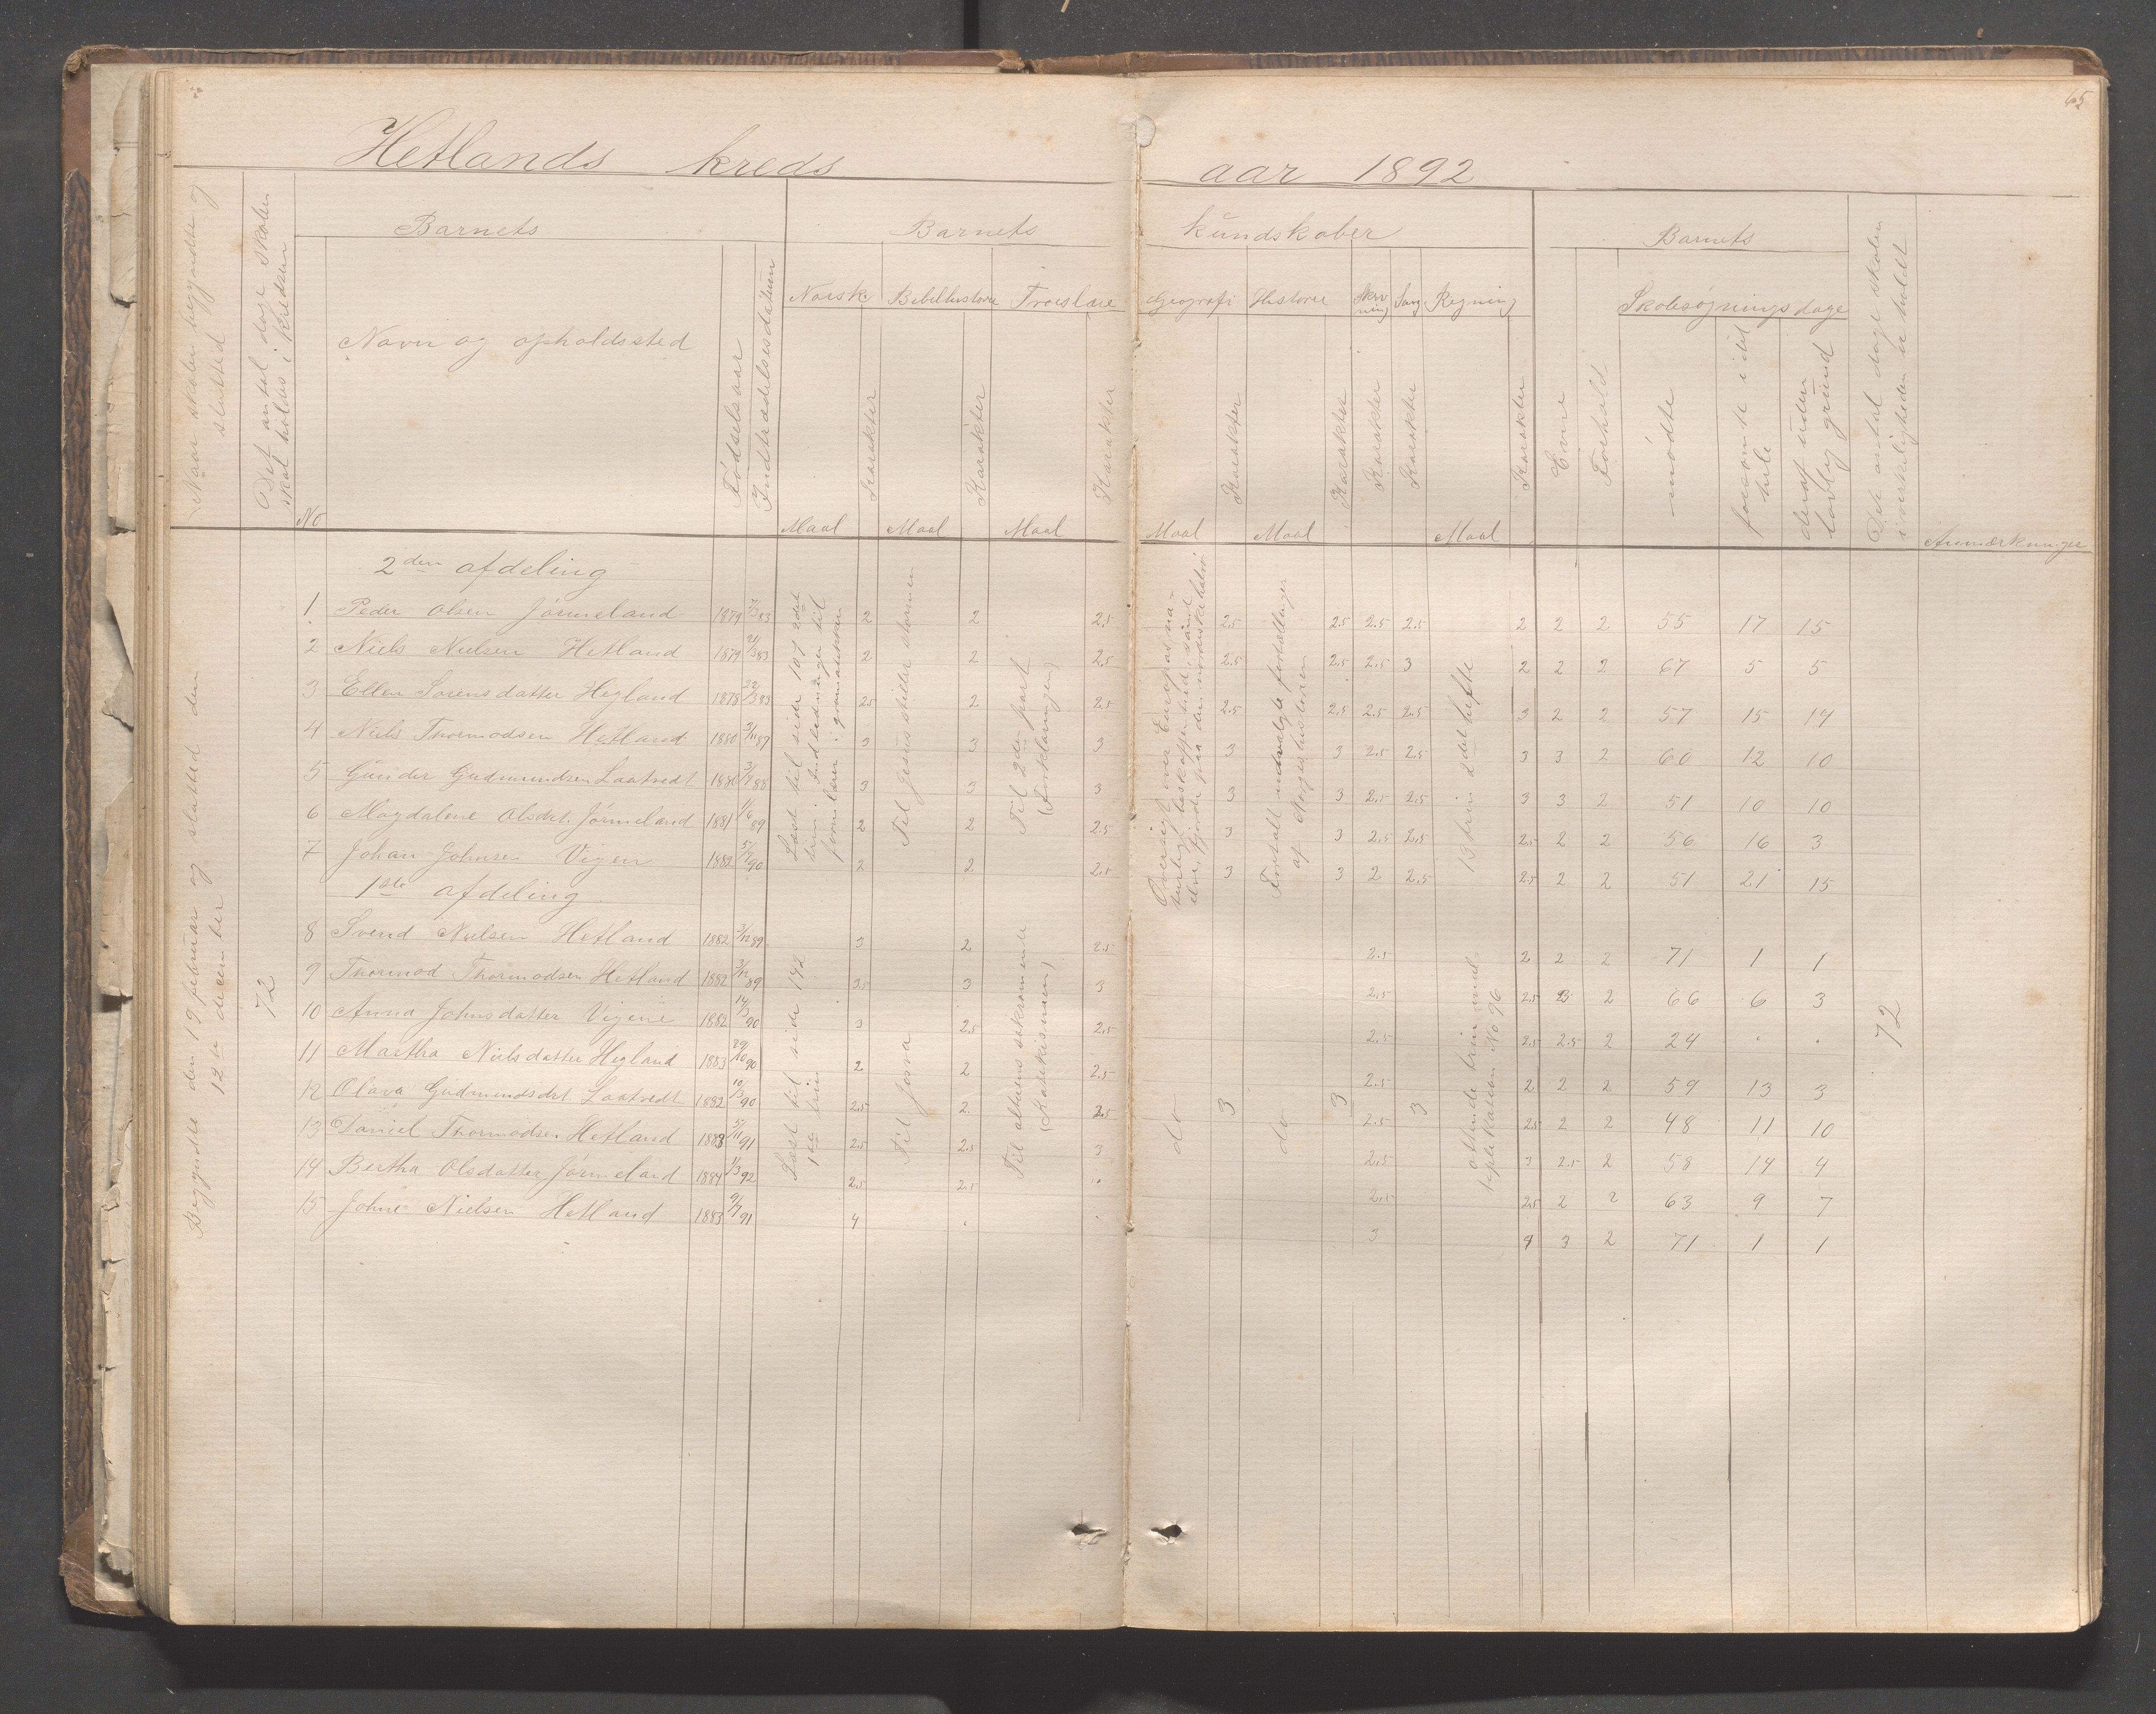 65
Hetlands kreds aar 1892
Naar skolen begyndte og slutted
Det antal dage skolen skal holdes i kredsen
Barnets
No
Navn og opholdssted
Fødselsaar
Indtrædelsesdatum
Barnets kundskaber
Norsk Bibelhistorie Troeslære Geografi Historie Skrivning Sang Regning
Maal Karakter Maal Karakter Maal Karakter Maal Karakter Maal Karakter Karakter Karakter Maal Karakter
Barnets
Evne Forhold
Skolesøgningsdage
mødte
forsømte i det hele
deraf uden lovlig grund
Det antal dage skolen i virkeligheden er holdt
Anmærkninger
Begyndte den 19 februar og slutted den 12te december
72
2den afdeling
1 Peder Olsen Jørmeland 1879 83 2 2 2.5 2.5 2.5 2.5 2.5 2 2 2 55 17 15
2 Niels Nielsen Hetland 1879 21/3 83 2 2 2.5 2.5 2.5 2.5 3 2 2 2 67 5 5
3 Ellen Sørensdatter Hegland 1878 22/3 83 2.5 2 2.5 2.5 2.5 2.5 2.5 3 2 2 57 15 14
4 Niels Thormodsen Hetland 1880 3/11 87 3 3 3 3 3 2.5 2.5 3 3 2 60 12 10
5 Gunder Gudmundsen Laatvedt 1880 88 3 3 3 3 3 2.5 2.5 3 3 2 51 10 10
6 Magdalene Olsdat. Jørmeland 1881 1/6 89 2 2 2.5 3 3 2.5 2.5 2.5 2 2 56 16 3
7 Johan Johnsen Vigen 1882 5/7 90 2 2 2.5 3 3 2 2.5 2.5 2 2 51 21 15
Læst til side 107 2det trin. Indledninger til formlære i grammatikken
Til Jesus stiller stormen
Til 2den part (Forklaringen)
Oversigt over Europas naturlige beskaffenhed, samt elve, fjorde paa den nordiske halvø
Fortalt udvalgte fortællinger af Norgeshistorien
13 trin 2det hefte
1ste afdeling
8 Svend Nielsen Hetland 1882 7/12 89 3 2 2.5 2.5 2 2 2 71 1 1
9 Thormod Thormodsen Hetland 1882 3/12 89 2.5 3 3 2.5 2.5 2 66 6 3
10 Anna Johnsdatter Vigene 1882 14/3 90 3 2.5 2.5 2.5 2.5 2.5 2 24 . .
11 Martha Nielsdatter Hegland 1883 29/10 90 2 2 2.5 2.5 2 2 2 59 13 3
12 Olava Gudmundsdat Laatvedt 1882 10/3 90 2.5 2 2.5 2.5 2.5 2 2 48 11 10
13 Daniel Thormodsen Hetland 1883 5/11 91 2.5 2.5 3 2.5 3 2.5 2 58 14 4
14 Bertha Olsdatter Jørmeland 1884 1/3 92 2.5 2.5 . 2.5 2.5 2 2 63 9 7
15 Johne Nielsen Hetland 1883 9/7 91 4 . . 3 4 3 2 71 1 1
Læst til side 142 1ste trin
Til Josva
Til alterens sakramente (Katekismen)
do 3 do 3 3
ottende trin multiplikation No 96
72